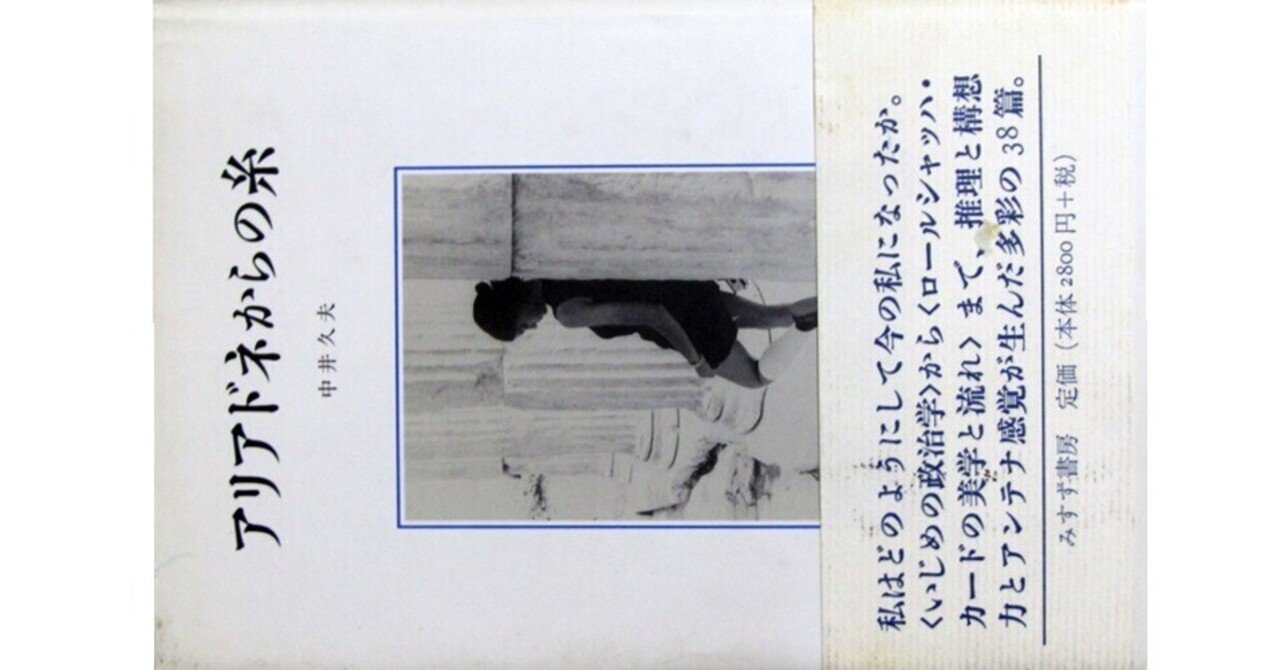 アリアドネからの糸
中井久夫
私はどのようにして今の私になったか。
〈いじめの政治学〉から〈ロールシャッハ・
カードの美学と流れ〉まで、推理と構想
力とアンテナ感覚が生んだ多彩の38篇。
みすず書房　定価（本体2800円＋税）